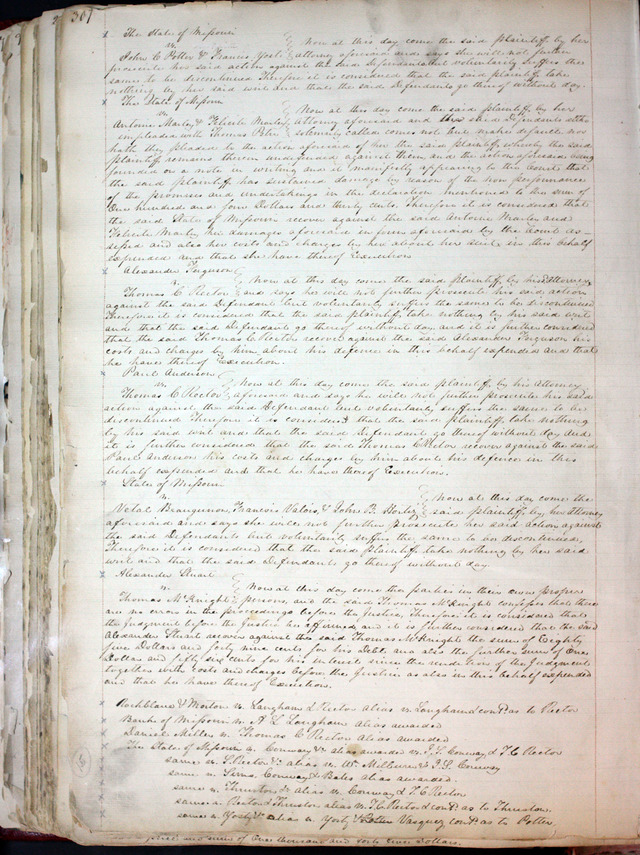 307
The State of Missouri
vs. Now at this day come the said plaintiff by her
John C Potter & Francis Yosti attorney aforesaid and says she will not further
prosecute her said action against the said Defendants but voluntarily suffers the
same to be discontinued Therefore it is considered that the said plaintiff take
nothing by her said writ and that the said Defendants go thereof without day.
The State of Missouri
vs. Now at this day come the said plaintiff by her
Antoine Marley & Felicite Marley attorney aforesaid and the said Defendants
impleaded with Thomas solemnly called comes not but makes default nor
hath they pleaded to the action aforesaid of her the said plaintiff whereby the said
plaintiff remains therein undefended against them, and the action aforesaid being
founded on a note in writing and it manifestly appearing to the Court that
the said plaintiff has sustained damage by reason of the non performance
of the promises and undertakings in the declaration mentioned to the sum of
One hundred and four Dollars and thirty cents. Therefore it is considered that
the said State of Missouri recover against the said Antoine Marley and
Felicite Marley her damages aforesaid in form aforesaid by the Court as-
sessed and also her costs and charges by her about her suit in this behalf
expended and that she have thereof Execution
Alexander Ferguson
vs. Now at this day come the said plaintiff by his Attorney
Thomas C Rector and says he will not further prosecute his said action
against the said Defendant but voluntarily suffers the same to be discontinued
Therefore it is considered that the said plaintiff take nothing by his said writ
and that the said Defendant go thereof without day and it is further considered
that the said Thomas C Rector recover against the said Alexander Ferguson his
costs and charges by him about his defence in this behalf expended and that
he have thereof Execution.
Paul Anderson
vs. Now at this day come the said plaintiff by his Attorney
Thomas C Rector aforesaid and says he will not further prosecute his said
action against the said Defendant but voluntarily suffers the same to be
discontinued Therefore it is considered that the said plaintiff take nothing
by his said writ and that the said Defendant go thereof without day and
it is further considered that the said Thomas C Rector recover against the said
Paul Anderson his costs and charges by him about his defence in this
behalf expended and that he have thereof Execution.
State of Missouri
vs. Now at this day come the
Vetal Francois Valois, & John B. said plaintiff by her attorney
aforesaid and says she will not further prosecute her said action against
the said Defendants but voluntarily suffers the same to be discontinued,
Therefore it is considered that the said plaintiff take nothing by her said
writ and that the said Defendant go thereof without day.
Alexander Stuart
vs. Now at this day come the parties in their own proper
Thomas McKnight persons, and the said Thomas McKnight confesses that there
are no errors in the proceedings before the Justice, therefore it is considered that
the Judgment before the Justice be affirmed and it is further considered that the said
Alexander Stuart recover against the said Thomas McKnight the sum of Eighty
five Dollars and forty nine cents for his debt, and also the further sum of One
Dollars and fifty six cents for his interest since the rendition of the Judgment
together with costs and charges before the Justice as also in this behalf expended
and that he have thereof Execution.
Rochblave & Morton vs. Langham & Rector alias vs. Langham & cont. as to Rector
Bank of Missouri vs A L Langham alias awarded
Daniel Miller vs. Thomas C Rector Alias awarded
The State of Missouri vs. Conway &c alias awarded vs J.S. Conway & T C Rector
same vs. Rector &c alias vs. Wm Milburn & J S. Conway
same vs. Conway & Bates alias awarded.
same vs Thruston &c alias vs. Conway & T C Rector
same vs. Rector & Thruston alias vs. T. C. Rector & cont. as to Thruston
same vs. Yosty &c alias vs. Yosty & Vasquez cont. as to Potter
sum of One thousand and forty Dollars.